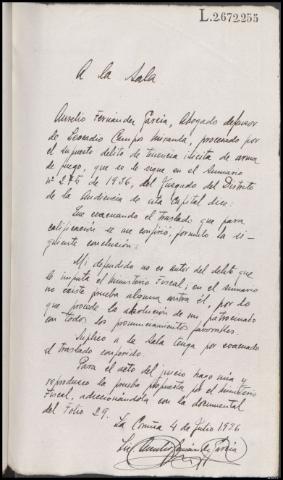 L.2672255
A la Sala
Aurelio Fernández García, Abogado defensor
de Leocadio Campo Miranda, procesado por
el supuesto delito de tenencia ilícita de arma
de fuego, que se le sigue en el Sumario
nº 276 de 1936, del Juzgado del Distrito
de la Audiencia de esta Capital dice:
Que evacuando el traslado que para
calificación se me confirió, formulo la si-
guiente conclusión:
Mi defendido no es autor del delito que
le imputa el Ministerio Fiscal; en el sumario
no existe prueba alguna contra él, por lo
que procede la absolución de mi patrocinado
con todos los pronunciamientos favorables.
Suplico a la Sala tenga por evacuado
el traslado conferido.
Para el acto del juicio hago mía y
reproduzco la prueba propuesta por el Ministerio
Fiscal, adicionándola con la documental
del Folio 29.
La Coruña 4 de Julio 1936